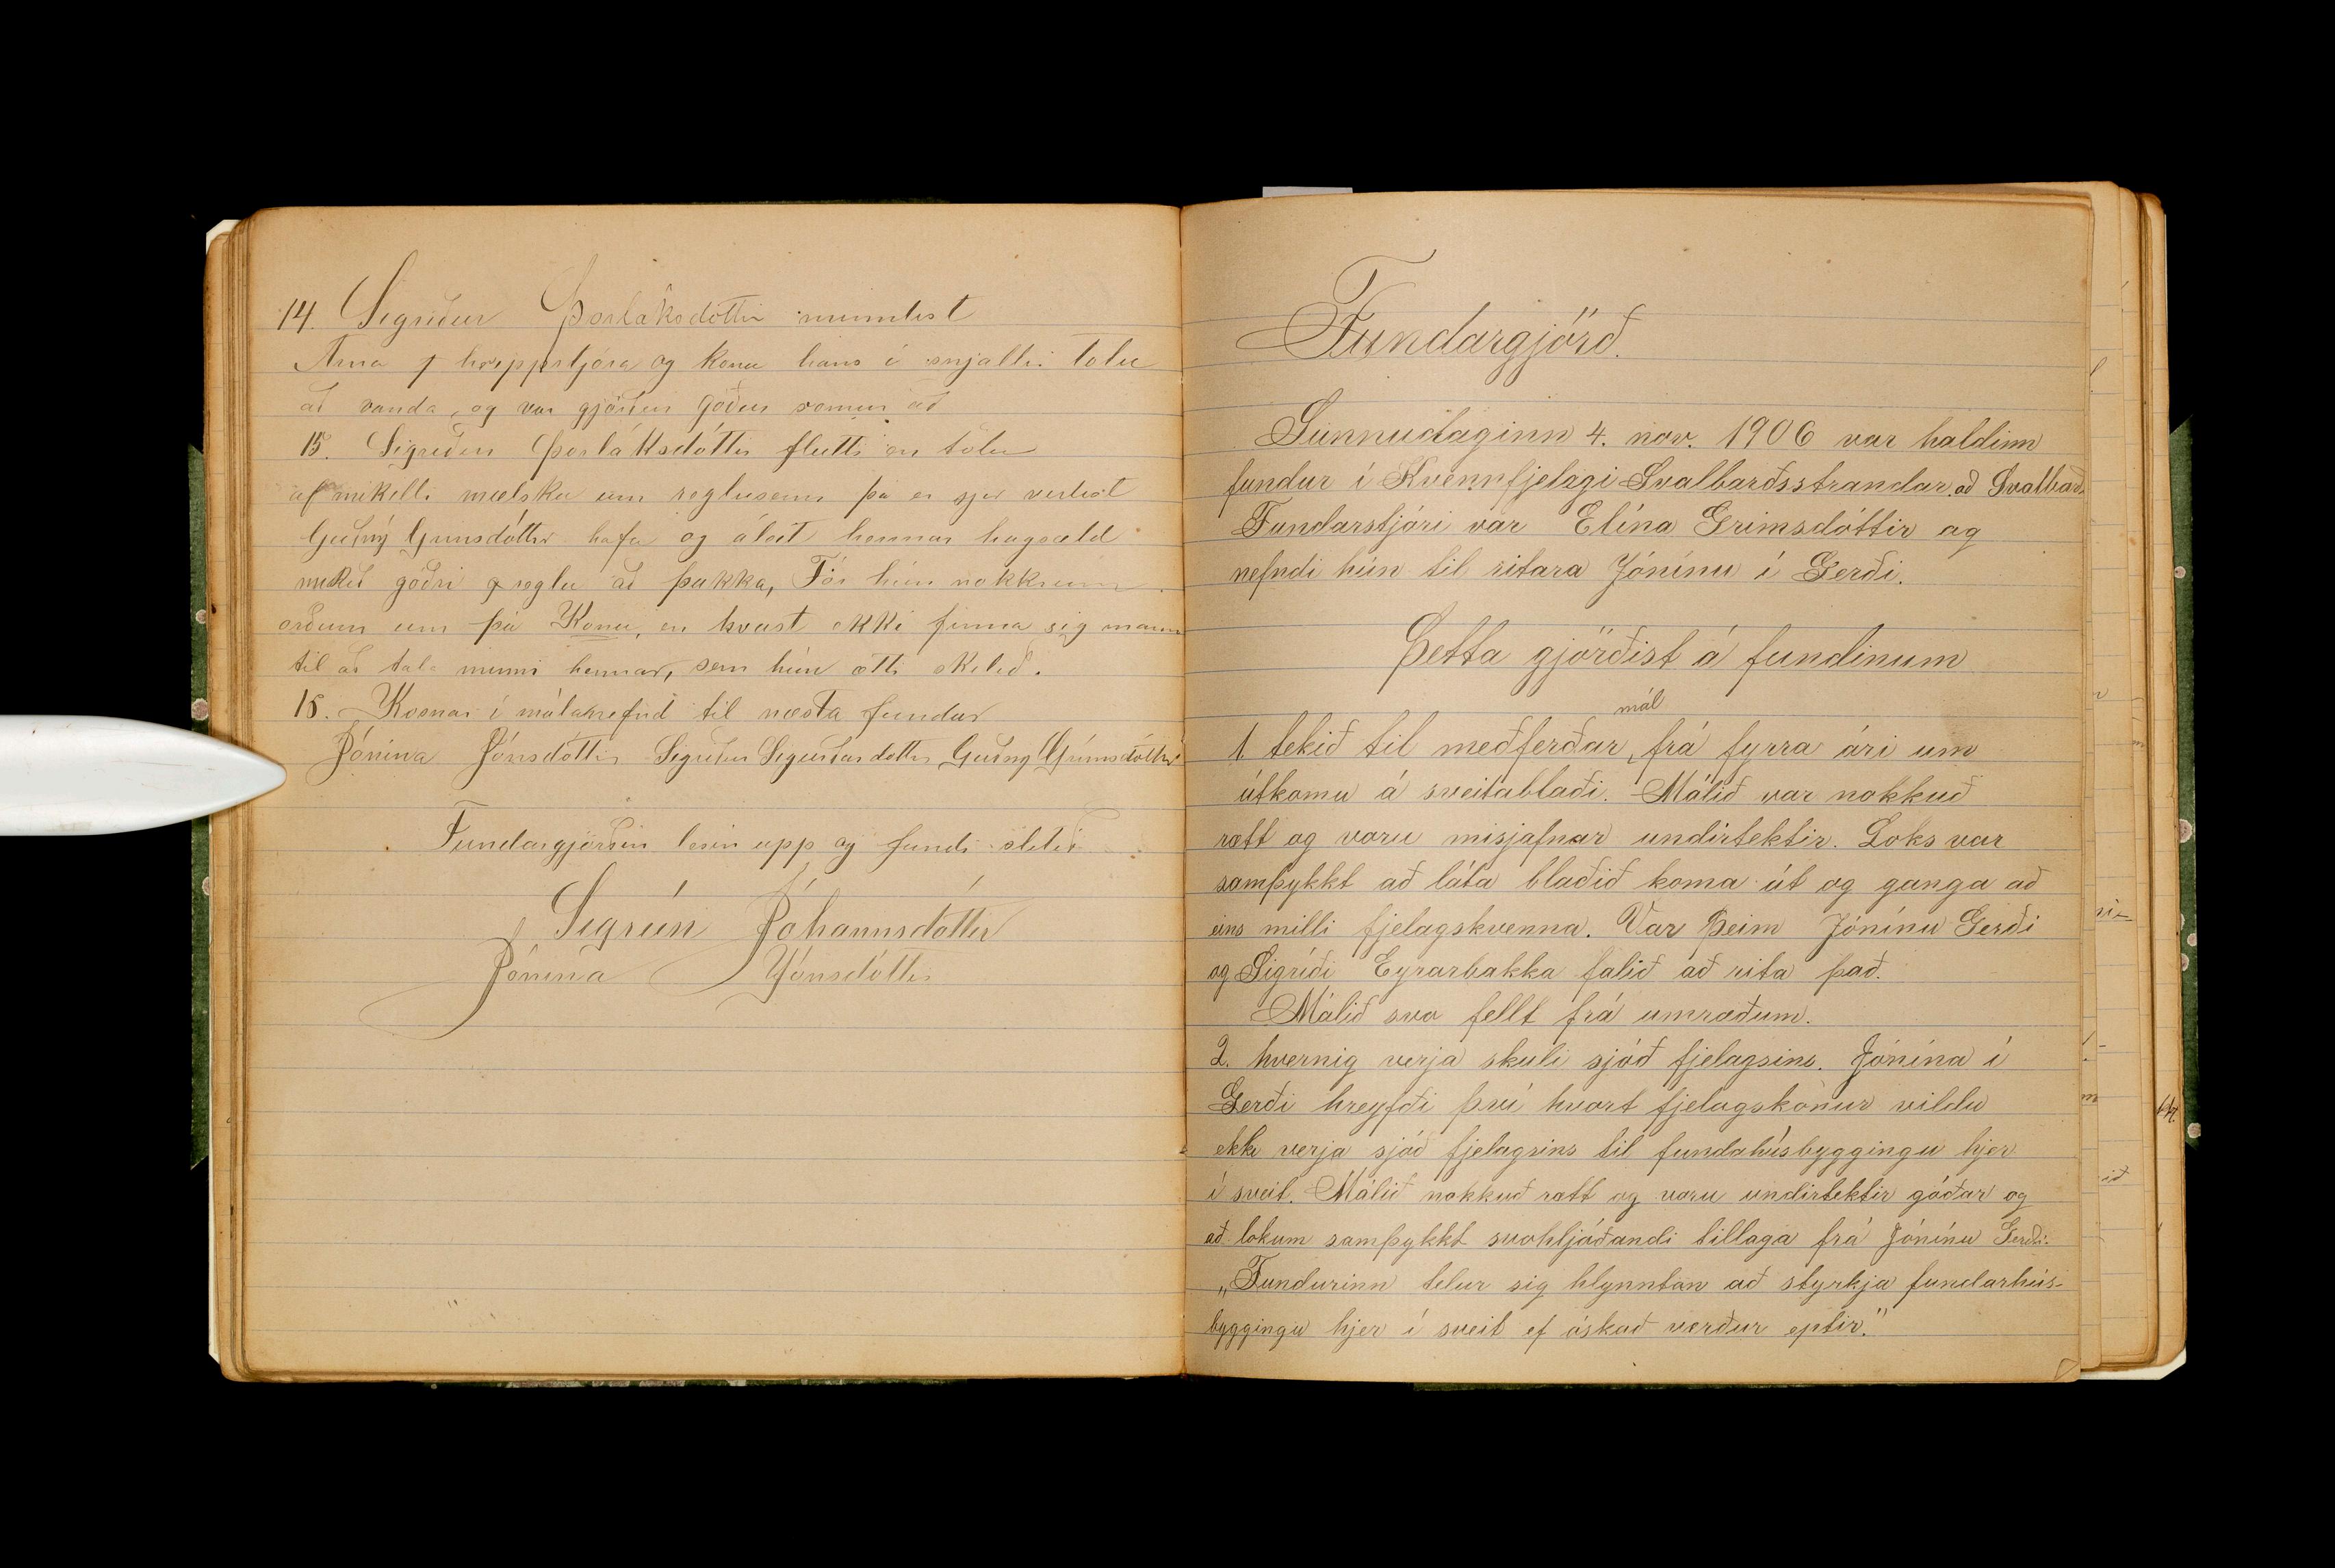 14. Sigríður Þorláksdóttir minntist
Árna hreppstjóra og konu hans í snjallri tölu
að vanda, og var gjörður góður romur að
15. Sigríður Þorláksdóttir flutti en tölu
af mikilli mælsku um reglusemi þa er sjer virtist
Guðný Grímsdóttir hafa og áleit hennar hagsæld
mikið góðri reglu að þakka, Fór hún nokkrum
orðum um þá Konu, en kvast ekki finna sig mann
til að tala minni hennar, sem hún ætti skilið.
15. Kosnar í málanefnd til næsta fundar
Jónína Jónsdóttir Sigríður Sigurðardottir Guðný Grímsdóttir
Fundargjörðin lesin upp og fundi slitið
Sigrún Jóhannsdóttir
Jónína Jónsdóttir
Fundargjörð.
Sunnudaginn 4. nov. 1906 var haldinn
fundur í Kvennfjelagi Svalbarðsstrandar að Svalbarði
Fundarstjóri var Elína Grimsdóttir og
nefndi hún til ritara Jónínu í Gerði.
Þetta gjörðist á fundinum
mál
1. tekið til meðferðar, frá fyrra ári um
útkomu á sveitablaði. Málið var nokkuð
rætt og voru misjafnar undirtektir. Loks var
samþykkt að láta blaðið koma út og ganga að
eins milli fjelagskvenna. Var Þeim Jónínu Gerði
og Sigríði Eyrarbakka falið að rita það.
Málið svo fellt frá umræðum.
2. hvernig verja skuli sjóð fjelagsins. Jónína í
Gerði hreyfði því hvort fjelagskonur vildu
ekki verja sjóð fjelagsins til fundahúsbyggingu hjer
í sveit. Málið nokkuð rætt og voru undirtektir góðar og
að lokum samþykkt svohljóðandi tillaga frá Jónínu Gerði.
„Fundurinn telur sig hlynntan að styrkja fundarhús-
byggingu hjer í sveit ef óskað verður eptir."